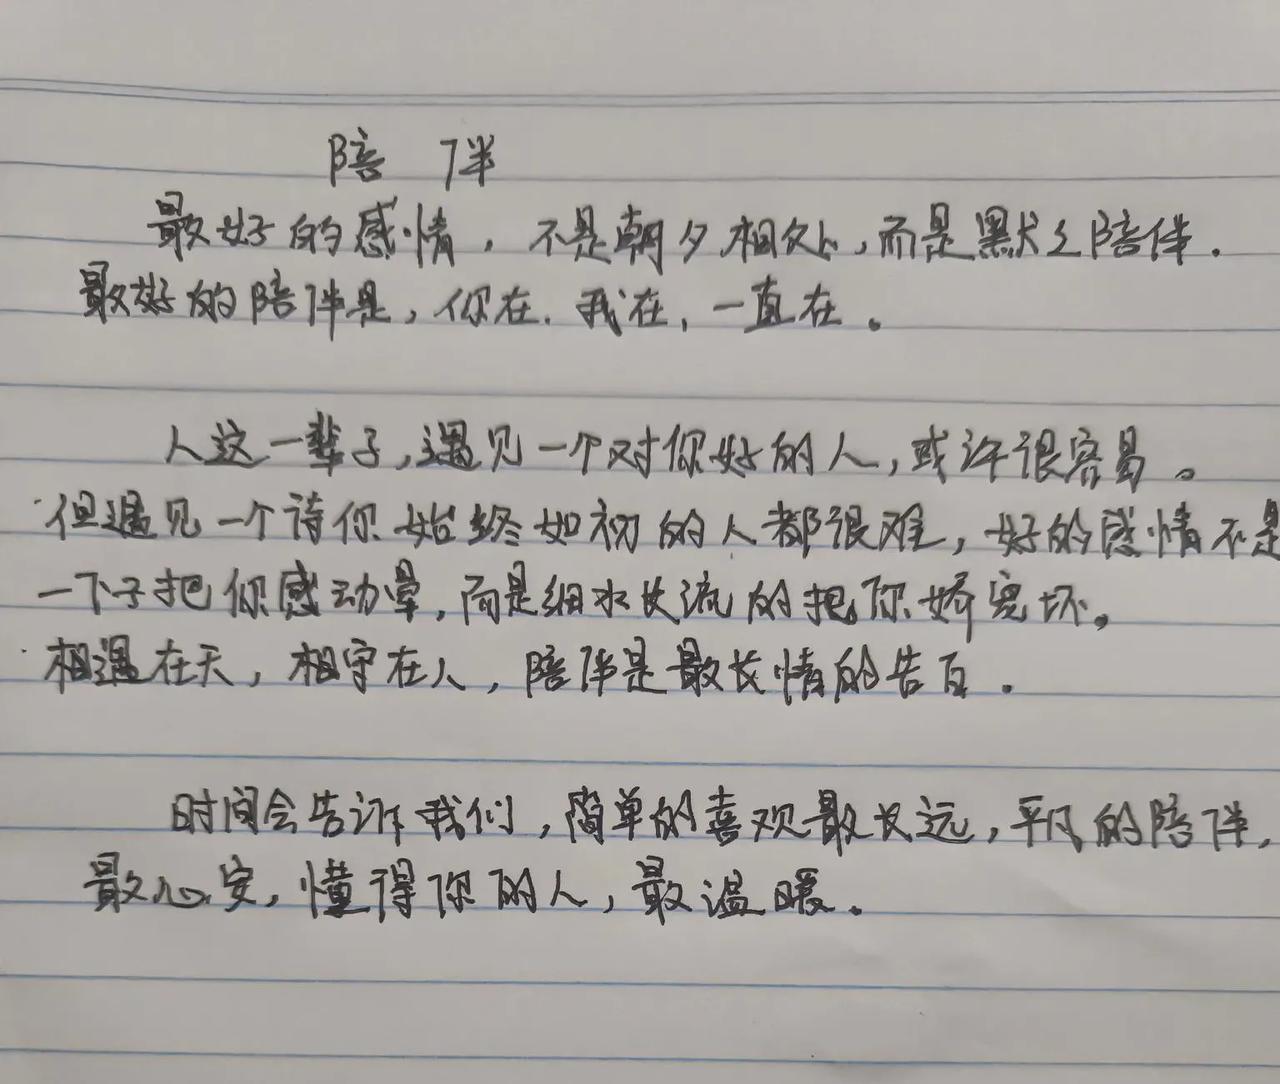 陪伴
最好的感情，不是朝夕相处，而是默々陪伴.
最好的陪伴是，你在.我在，一直在。
人这一辈子，遇见一个对你好的人，或许很容易。
但遇见一个待你始终如初的人都很难，好的感情不是
一下子把你感动晕，而是细水长流的把你娇宠坏。
相遇在天，相守在人，陪伴是最长情的告白.
时间会告诉我们，简单的喜欢最长远，平凡的陪伴，
最心安，懂得你的人，最温暖。